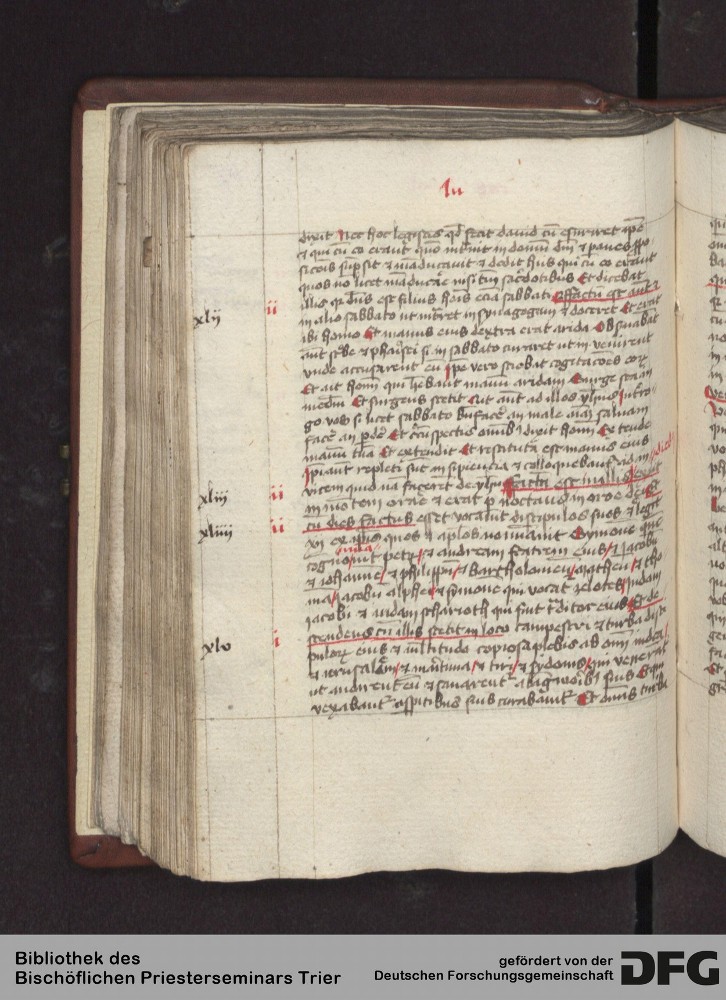 Lu
dixit Nec hoc legistis qd fecit dauid cu esuriret ipe
et qui cu eo erant quo intuit in domu dei et panes ppo
sicois supsit et maducauit et dedit hus qui cu eo erant
quos no licet maducare nisi tm sacdotibus Et dicebat
illis qr dns est filius hois ecia sabbati Factu est aut
xlij ii in alio sabbato ut intret in synagogam et doceret Et erat
ibi homo Et manus eius dextra erat arida Obseruabat
aut scbe et pharisei si in sabbato curaret ut inuenirent
vnde accusarent eu Ipe vero sciebat cogitacoes eor
Et ait homi qui hebant manu aridam Surge sta in
mediu Et surgens stetit Ait aut ad illos yhus Intro
go vos si licet sabbato bnfacere an male aiam saluam
facere an pdere Et cuspectis omib dixit homi Extende
manu tua Et extendit Et restituta est manus eius
Ipi aut repleti sut insipiencia et colloquebant ad in
vicem quidna faceret de yhu Factu est in illis dieb exiit
xliij ii in mote orare et erat pnoctans in oroe dei Et
xliiij ii cu dies factus esset vocauit discipulos suos et elegit
xij ex ipsis quos et aplos nominauit Symone que
cognoiauit petr et andream fratrem eius et Jacobu
et iohanne et philippu et Bartholomeu matheu et tho
ma Jacobu alphei et simone qui vocat zelotes Judam
Jacobi et iudam scharioth qui fuit proditor eius Et de
xlv i scendens cu illis stetit in loco campestri et turba disci
pulor eius et multitudo copiosa plebis ab omi iudea
et ierusalem et maritima et tiri et sydonis qui venerat
ut audirent eu et sanarent a lagworib suis Et qui
vexabant a spiritibus curabant Et omis turba
Bibliothek des
Bischöflichen Priesterseminars Trier
gefördert von der
Deutschen Forschungsgemeinschaft
DFG